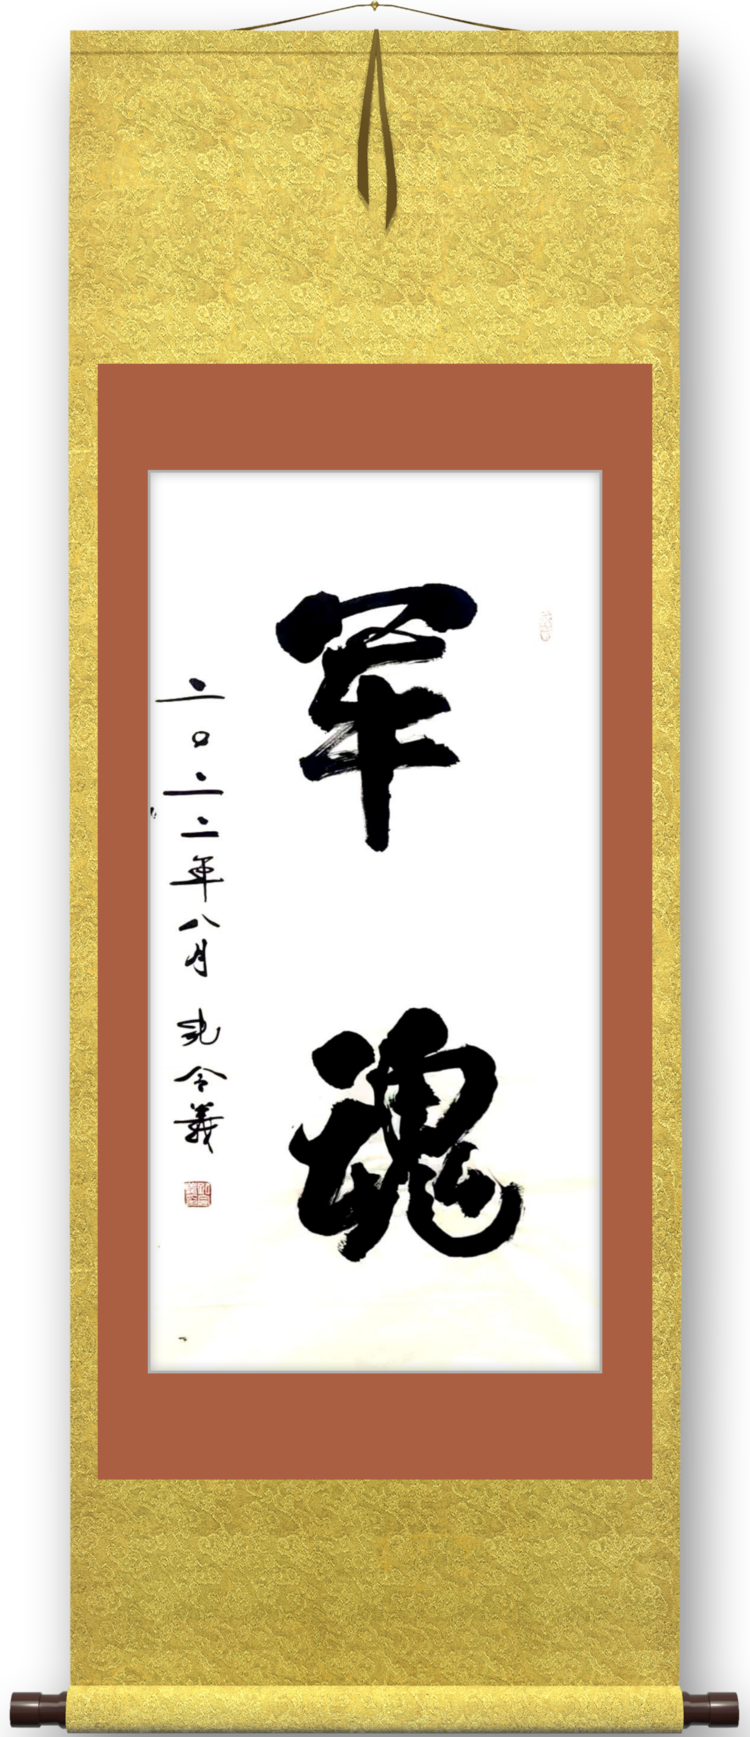 军魂
二〇二二年八月 令義